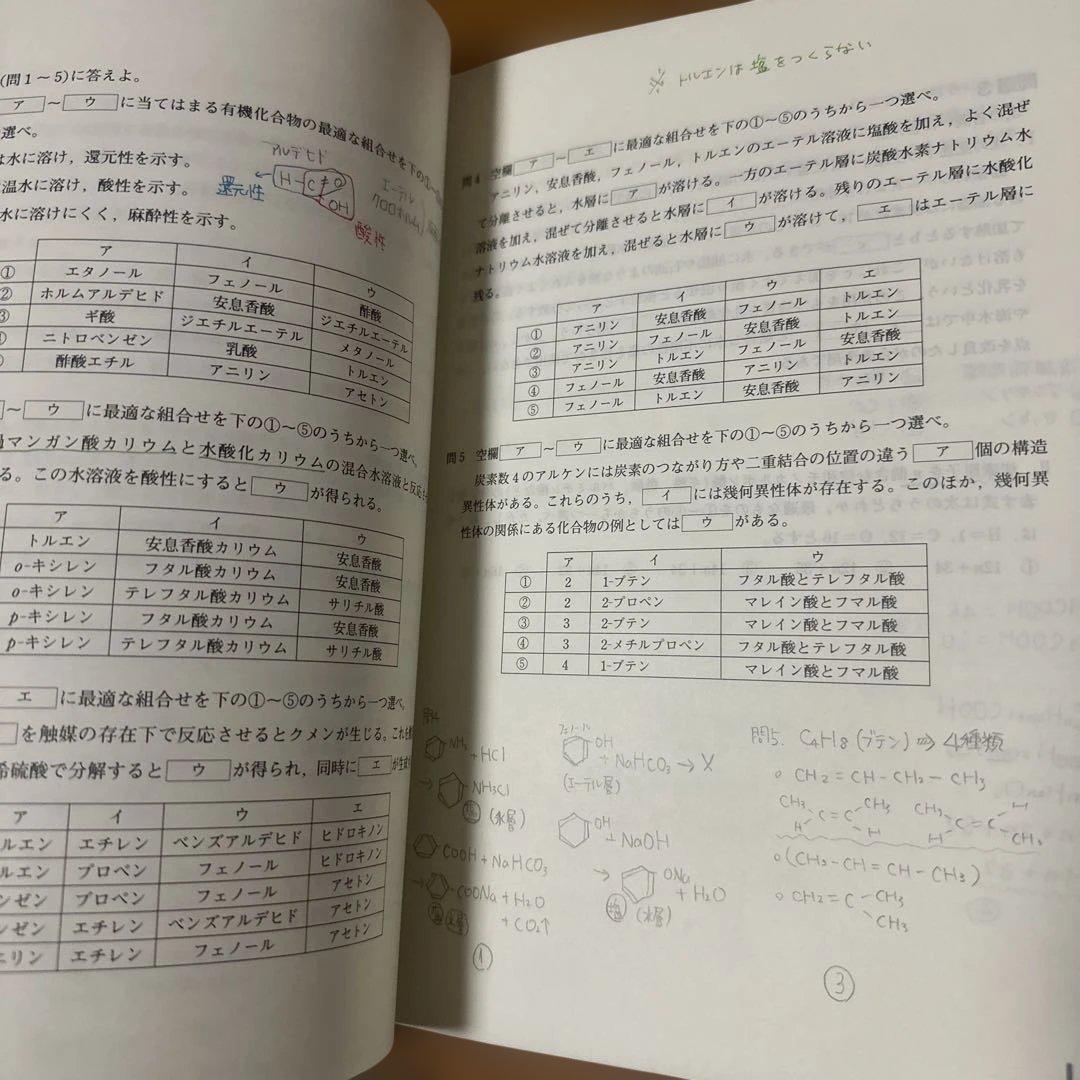 (問1～5)に答えよ。
ア ～ ウ に当てはまる有機化合物の最適な組合せを下の①～
選べ。
は水に溶け，還元性を示す。
温水に溶け，酸性を示す。
水に溶けにくく，麻酔性を示す。
アルデヒド
還元性
H－C＝O
OH
酸性
エーテル
クロロホルム
ア イ ウ
① エタノール フェノール 酢酸
② ホルムアルデヒド 安息香酸 ジエチルエーテル
③ ギ酸 ジエチルエーテル メタノール
ニトロベンゼン 乳酸 トルエン
酢酸エチル アニリン アセトン
～ ウ に最適な組合せを下の①～⑤のうちから一つ選べ。
マンガン酸カリウムと水酸化カリウムの混合水溶液と反応
る。この水溶液を酸性にすると ウ が得られる。
ア イ ウ
トルエン 安息香酸カリウム 安息香酸
o-キシレン フタル酸カリウム 安息香酸
o-キシレン テレフタル酸カリウム サリチル酸
p-キシレン フタル酸カリウム 安息香酸
p-キシレン テレフタル酸カリウム サリチル酸
エ に最適な組合せを下の①～⑤のうちから一つ選べ。
を触媒の存在下で反応させるとクメンが生じる。これを
希硫酸で分解すると ウ が得られ，同時に エ が生成
ア イ ウ エ
ルエン エチレン ベンズアルデヒド ヒドロキノン
ルエン プロペン フェノール ヒドロキノン
ンゼン プロペン フェノール アセトン
ンゼン エチレン ベンズアルデヒド アセトン
ニリン エチレン フェノール アセトン
※ トルエンは塩をつくらない
問4 空欄 ア ～ エ に最適な組合せを下の①～⑤のうちから一つ選べ。
アニリン，安息香酸，フェノール，トルエンのエーテル溶液に塩酸を加え，よく混ぜ
て分離させると，水層に ア が溶ける。一方のエーテル層に炭酸水素ナトリウム水
溶液を加え，混ぜて分離させると水層に イ が溶ける。残りのエーテル層に水酸化
ナトリウム水溶液を加え，混ぜると水層に ウ が溶けて， エ はエーテル層に
残る。
ア イ ウ エ
① アニリン 安息香酸 フェノール トルエン
② アニリン フェノール 安息香酸 トルエン
③ アニリン トルエン フェノール 安息香酸
④ フェノール 安息香酸 アニリン トルエン
⑤ フェノール トルエン 安息香酸 アニリン
問5 空欄 ア ～ ウ に最適な組合せを下の①～⑤のうちから一つ選べ。
炭素数4のアルケンには炭素のつながり方や二重結合の位置の違う ア 個の構造
異性体がある。これらのうち， イ には幾何異性体が存在する。このほか，幾何異
性体の関係にある化合物の例としては ウ がある。
ア イ ウ
① 2 1-ブテン フタル酸とテレフタル酸
② 2 2-プロペン マレイン酸とフマル酸
③ 3 2-ブテン マレイン酸とフマル酸
④ 3 2-メチルプロペン フタル酸とテレフタル酸
⑤ 4 1-ブテン マレイン酸とフマル酸
問4
NH₂ + HCl
→ NH₃Cl
塩 (水層)
COOH + NaHCO₃
→ COONa + H₂O
塩 水層 + CO₂↑
①
フェノール
OH
+ NaHCO₃ → X
(エーテル層)
OH
+ NaOH
→ ONa
+ H₂O
塩 (水層)
問5. C₄H₈ (ブテン) ⇒ 4種類
○ CH₂＝CH－CH₂－CH₃
CH₃ CH₃ CH₃ H
C＝C C＝C
H H H CH₃
○ (CH₃－CH＝CH－CH₃)
○ CH₂＝C－CH₃
CH₃
③